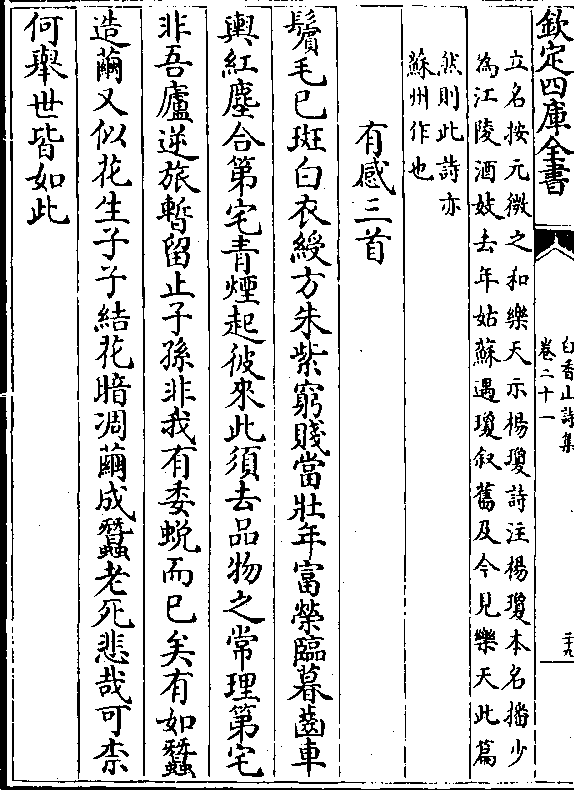 欽定四庫全書
白香山詩集
卷二十一
二十九
立名按元微之和樂天示楊瓊詩注楊瓊本名播少
為江陵酒妓去年姑蘇遇瓊叙舊及今見樂天此篇
然則此詩亦
蘇州作也
有感三首
鬢毛已斑白衣綬方朱紫窮賤當壯年富榮臨暮齒車
輿紅塵合第宅青煙起彼來此須去品物之常理第宅
非吾廬逆旅暫留止子孫非我有委蛻而已矣有如蠶
造繭又似花生子子結花暗凋繭成蠶老死悲哉可柰
何舉世皆如此